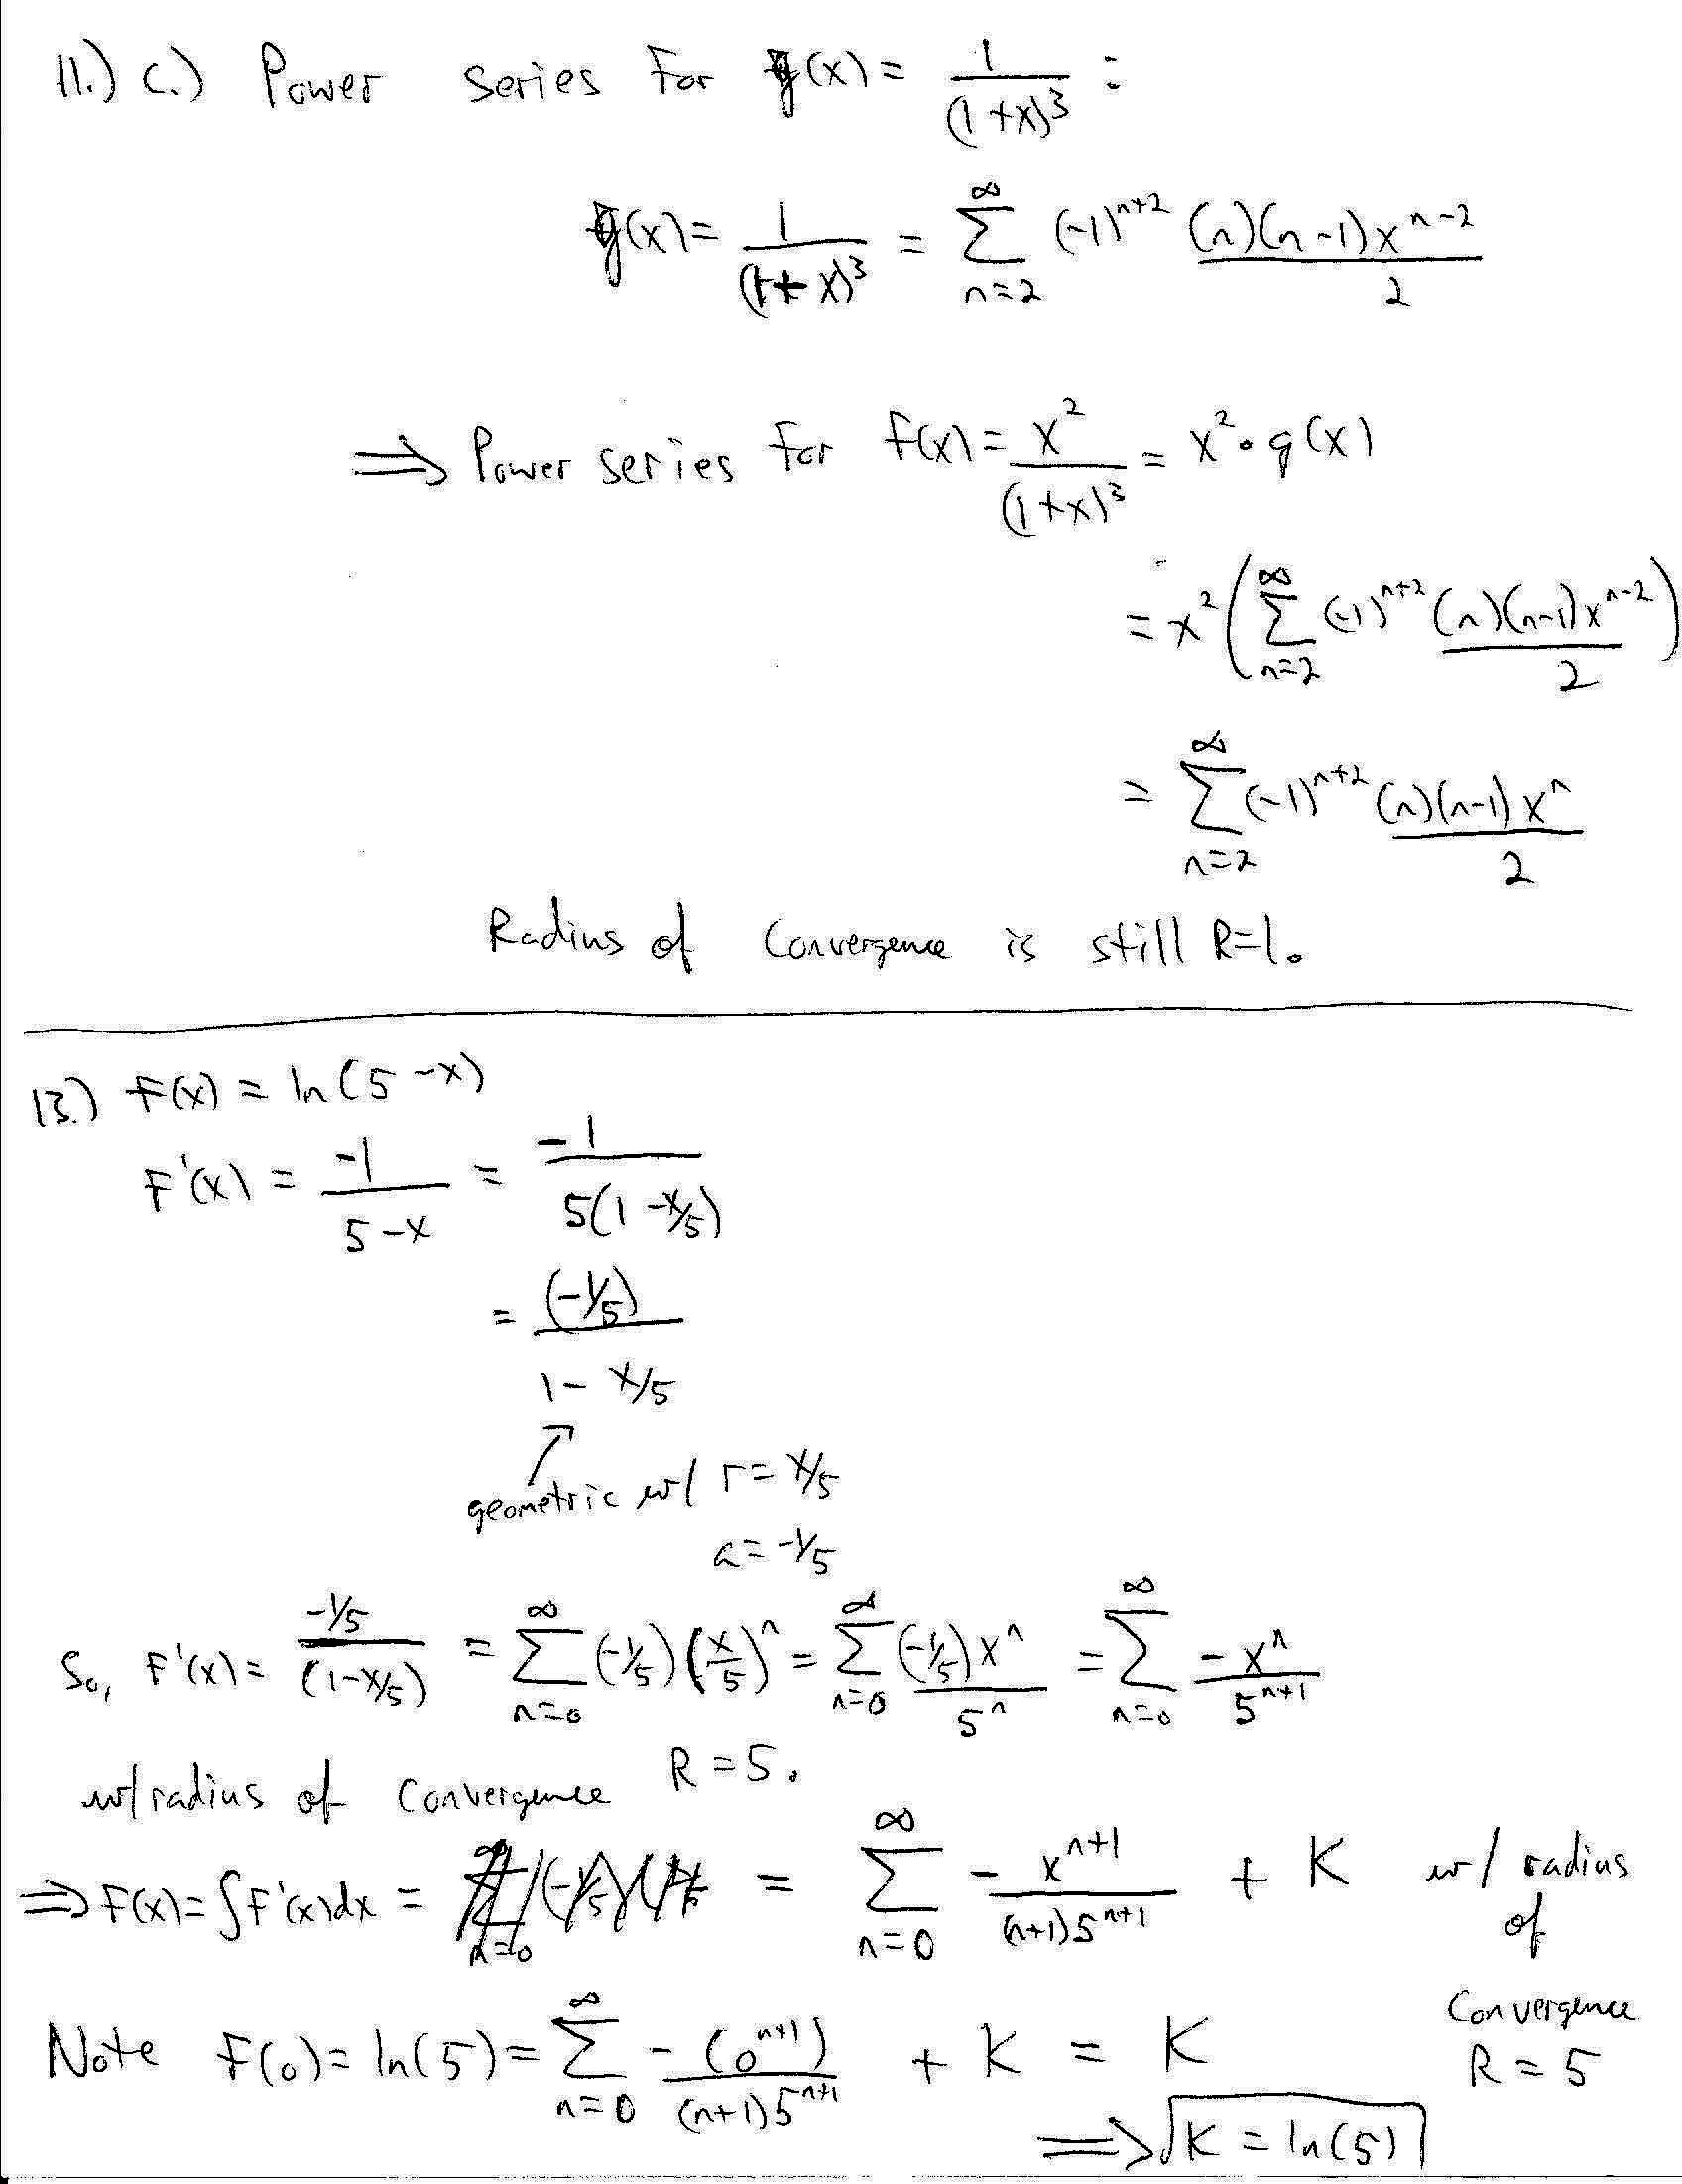 11.) c.) Power series for g(x) = 1/(1+x)^3 :
g(x) = 1/(1+x)^3 = ∑_{n=2}^{∞} (-1)^{n+2} (n)(n-1)x^{n-2}/2
⟹ Power series for f(x) = x^2/(1+x)^3 = x^2 • g(x)
= x^2 (∑_{n=2}^{∞} (-1)^{n+2} (n)(n-1)x^{n-2}/2)
= ∑_{n=2}^{∞} (-1)^{n+2} (n)(n-1)x^n/2
Radius of Convergence is still R=1.
13.) F(x) = ln(5-x)
F'(x) = -1/(5-x) = -1/(5(1-x/5))
= (-1/5)/(1-x/5)
↑
geometric w/ r = x/5
a = -1/5
So, F'(x) = (-1/5)/(1-x/5) = ∑_{n=0}^{∞} (-1/5)(x/5)^n = ∑_{n=0}^{∞} (-1/5)x^n/5^n = ∑_{n=0}^{∞} -x^n/5^{n+1}
w/ radius of Convergence R = 5.
⟹ F(x) = ∫F'(x)dx = = ∑_{n=0}^{∞} - x^{n+1}/((n+1)5^{n+1}) + K w/ radius
of
Convergence
R = 5
Note F(0) = ln(5) = ∑_{n=0}^{∞} - (0^{n+1})/((n+1)5^{n+1}) + K = K
⟹ K = ln(5)